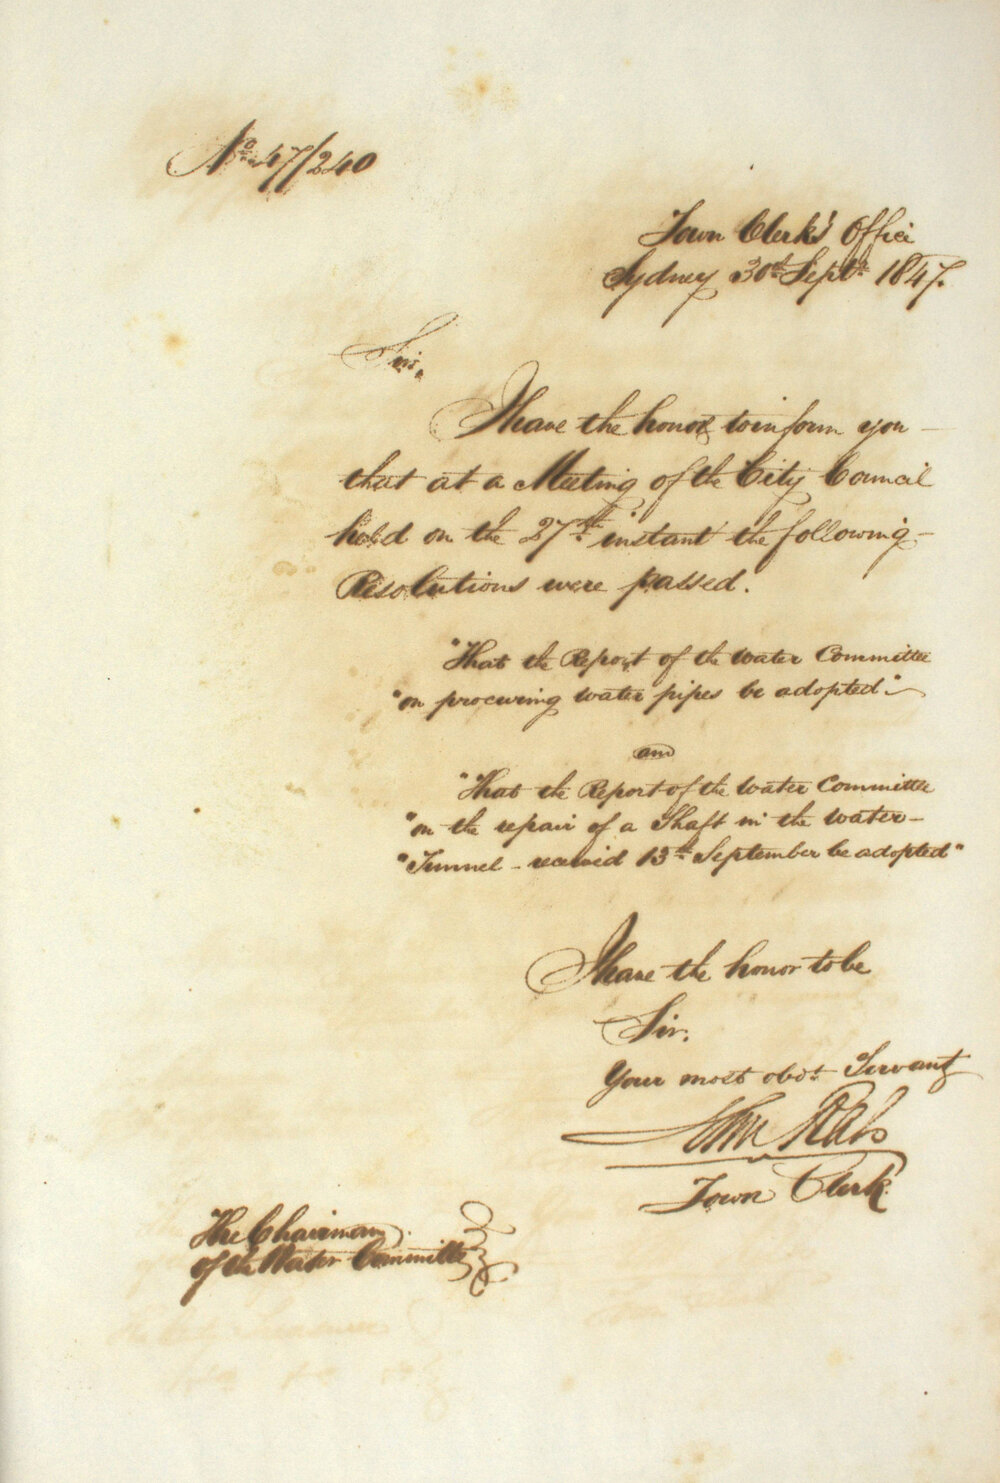 No 47/240
Town Clerk's Office
Sydney 30th Septr 1847.
Sir,
I have the honor to inform you
that at a Meeting of the City Council
held on the 27th instant the following
Resolutions were passed.
"That the Report of the Water Committee
"on procuring water pipes be adopted"
and
"That the Report of the Water Committee
"on the repair of a Shaft in the Water
"Tunnel - received 13th September be adopted"
I have the honor to be
Sir,
Your most obdt Servant
John Rae
Town Clerk
The Chairman
of the Water Committee